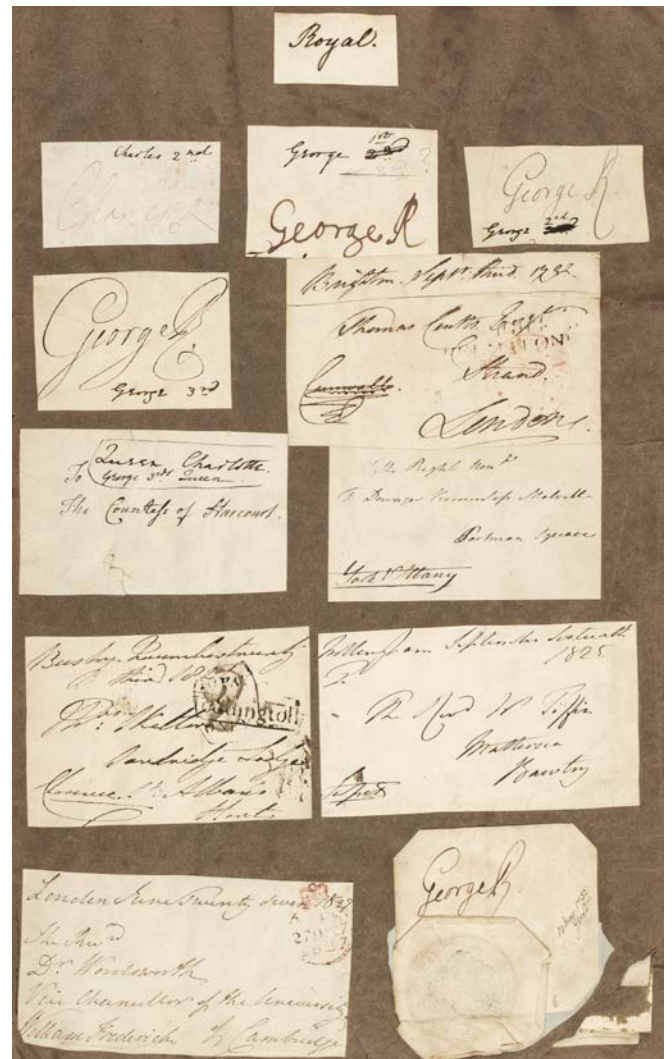 Royal.
Charles 2nd
Charles R
1st
George 2nd
3rd ?
George R
George R
2nd
George
George R
George 3rd
Brighton Septr. third 1792
Thomas Coutts Esqr.
Strand.
London.
Queen Charlotte.
To George 3rds Queen
The Countess of Harcourt.
The Right Honble
Dowager Viscountess Melville
Portman Square
York & Albany
Bushy
third
Lodge
Clarence St. Albans
Herts
September Sixteenth
1825
The Revd W Tiffin
Mattersea
Bawtry
London June Twenty seven 1827
The Revd
Dr Wordsworth
Vice Chancellor of the University
William Frederick of Cambridge
George R